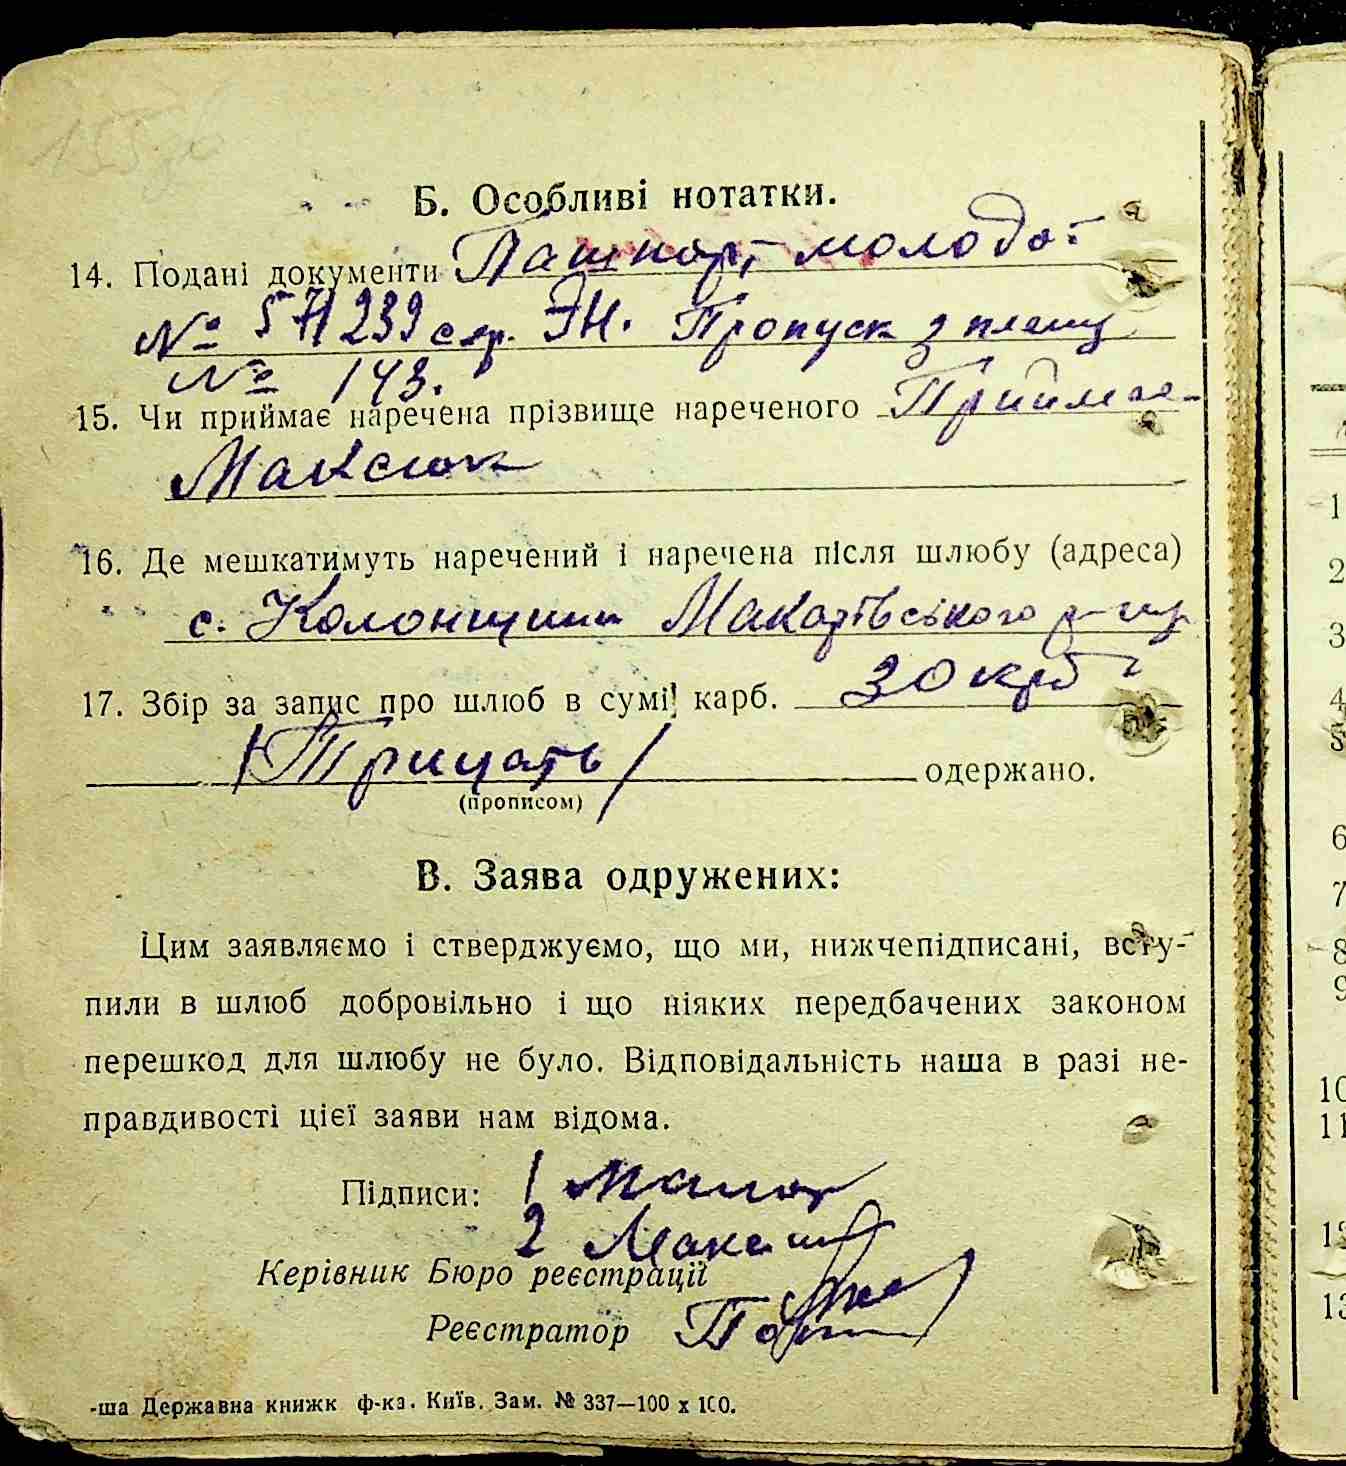 Б. Особливі нотатки.
14. Подані документи Пашпорт молодої
№ 571239 сер. ЭН. Пропуск з плену
№ 143.
15. Чи приймає наречена прізвище нареченого Приймає-
Максюк
16. Де мешкатимуть наречений і наречена після шлюбу (адреса)
с. Колонщини Макарівського р-ну
17. Збір за запис про шлюб в сумі карб. 30 крб
/Трицать/ одержано.
(прописом)
В. Заява одружених:
Цим заявляємо і стверджуємо, що ми, нижчепідписані, всту-
пили в шлюб добровільно і що ніяких передбачених законом
перешкод для шлюбу не було. Відповідальність наша в разі не-
правдивості цієї заяви нам відома.
Підписи: 1
2
Керівник Бюро реєстрації
Реєстратор
-ша Державна книжк ф-ка. Київ. Зам. № 337—100 х 100.
1
2
3
4
5
6
7
8
9
10
11
12
13